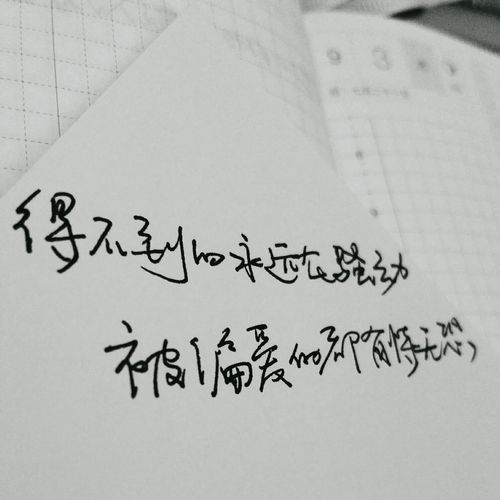 9 3
得不到的永远在骚动
被偏爱的却有恃无恐,